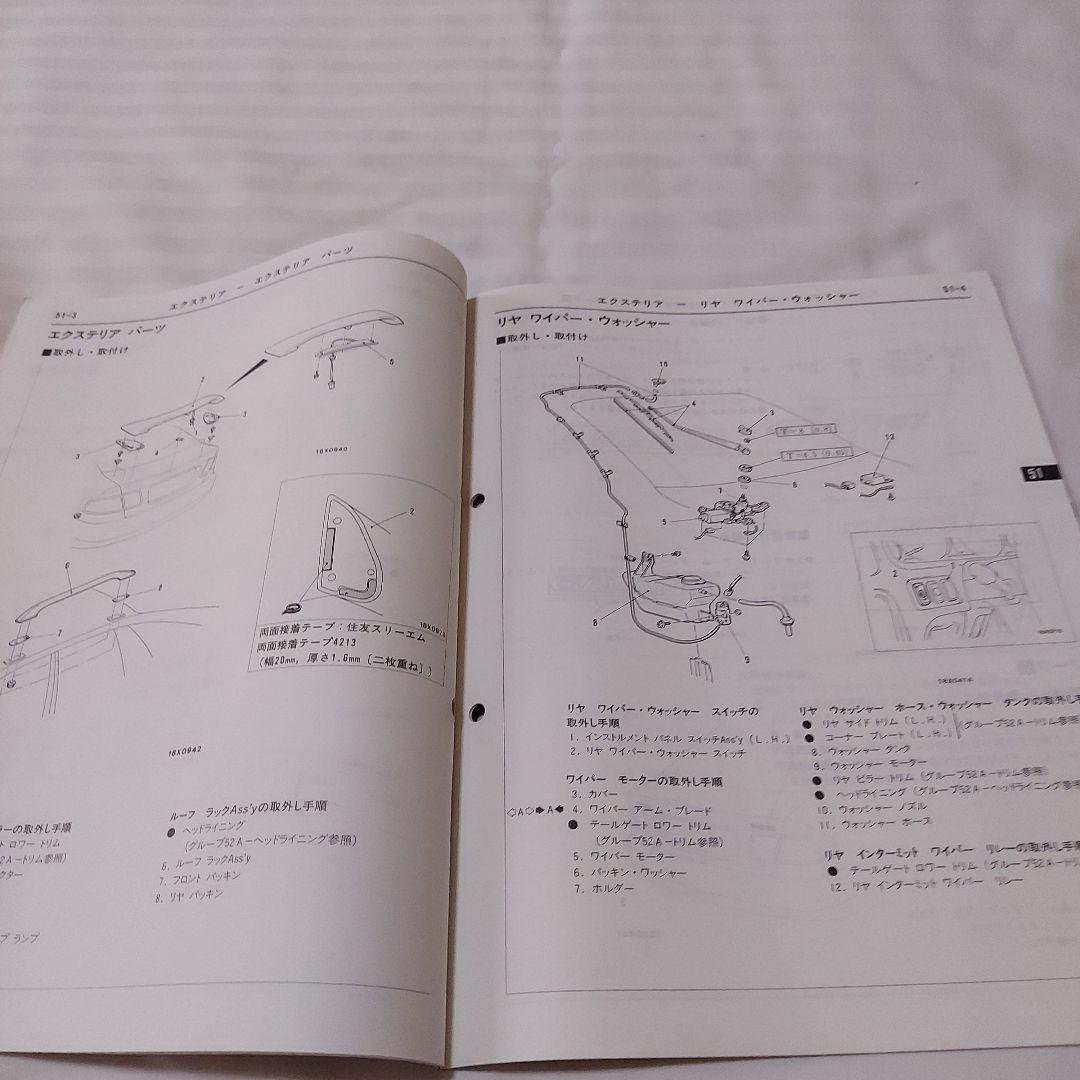 51-3
エクステリア － エクステリア パーツ
エクステリア パーツ
■取外し・取付け
5
3
16X0940
2
16X0973
両面接着テープ：住友スリーエム
両面接着テープ4213
(幅20mm，厚さ1.6mm〔二枚重ね〕)
6
8
7
16X0942
ーの取外し手順
ト ロワー トリム
52A－トリム参照)
クター
プ ランプ
ルーフ ラックAss'yの取外し手順
● ヘッドライニング
(グループ52A－ヘッドライニング参照)
6. ルーフ ラックAss'y
7. フロント パッキン
8. リヤ パッキン
エクステリア － リヤ ワイパー・ウォッシャー
51-4
リヤ ワイパー・ウォッシャー
■取外し・取付け
11
10
4
3
T=8 {0.8}
T=4.5 {0.45}
12
51
7
6
5
2
8
9
16X0414
リヤ ワイパー・ウォッシャー スイッチの
取外し手順
1. インストルメント パネル スイッチAss'y (L.H.)
2. リヤ ワイパー・ウォッシャー スイッチ
ワイパー モーターの取外し手順
3. カバー
◇A◇◆A◆ 4. ワイパー アーム・ブレード
● テールゲート ロワー トリム
(グループ52A－トリム参照)
5. ワイパー モーター
6. パッキン・ワッシャー
7. ホルダー
リヤ ウォッシャー ホース・ウォッシャー タンクの取外し手
● リヤ サイド トリム (L.H.)
● コーナー プレート (L.H.)
(グループ52A－トリム参照
8. ウォッシャー タンク
9. ウォッシャー モーター
● リヤ ピラー トリム (グループ52A－トリム参照)
● ヘッドライニング (グループ52A－ヘッドライニング参照
10. ウォッシャー ノズル
11. ウォッシャー ホース
リヤ インターミット ワイパー リレーの取外し手順
● テールゲート ロワー トリム (グループ52A－トリ
12. リヤ インターミット ワイパー リレー